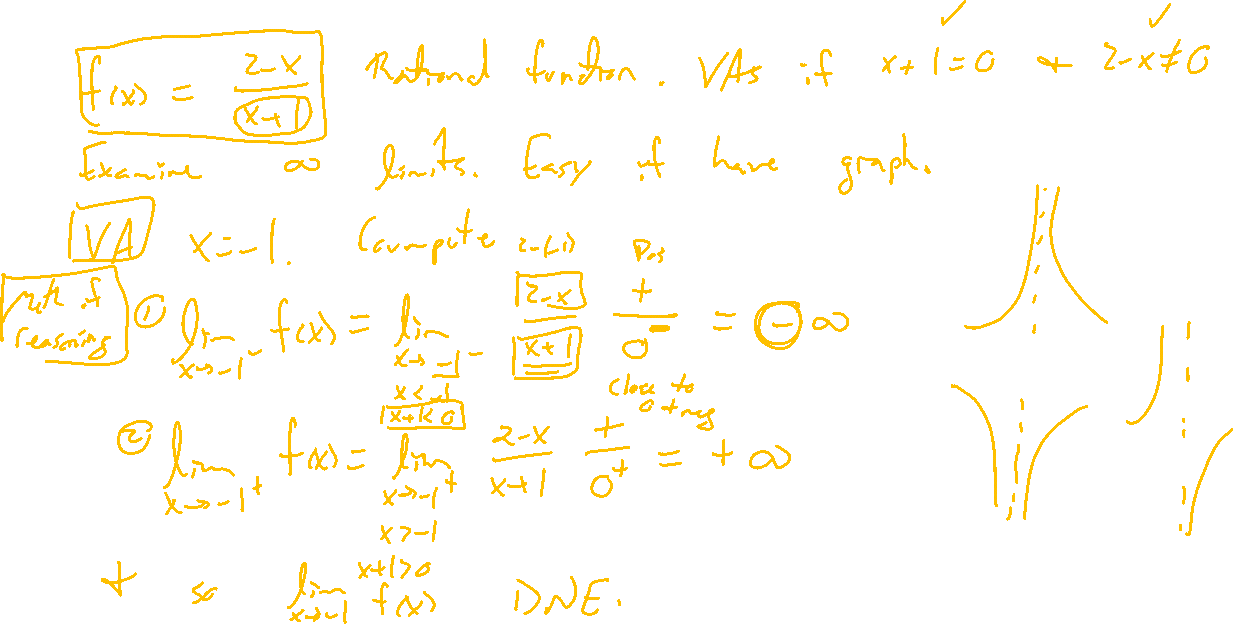 f(x) = (2-x)/(x+1) Rational function. VAs if x+1=0 + 2-x≠0 ✓ ✓
Examine ∞ limits. Easy if have graph.
VA x=-1. Compute
2-(-1) Pos
① lim x→-1⁻ f(x) = lim x→-1⁻ (2-x)/(x+1) +/0⁻ = -∞
reasoning
x<-1 close to
x+1<0 0 + neg
② lim x→-1⁺ f(x) = lim x→-1⁺ (2-x)/(x+1) +/0⁺ = +∞
x>-1
x+1>0
+ so lim x→-1 f(x) DNE.